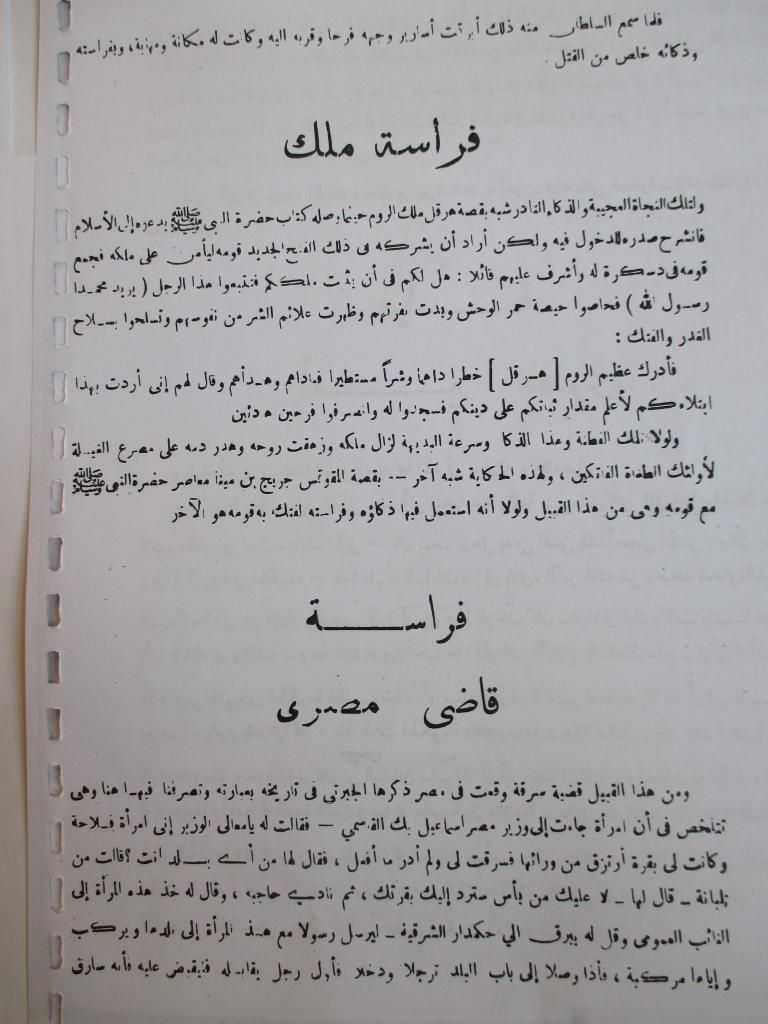 فلما سمع السلطان منه ذلك أبرقت أسارير وجهه فرحا وقربه اليه وكانت له مكانة ومهابة، وبفراسته
وذكائه خلص من القتل.
فرأسة ملك
ولتلك النجاة العجيبة والذكاء النادر شبه بقصة هرقل ملك الروم حينما وصله كتاب حضرة النبي ﷺ يدعوه إلى الأسلام
فانشرح صدره للدخول فيه ولكن أراد أن يشركه فى ذلك الفتح الجديد قومه ليأمن على ملكه فجمع
قومه فى دسكرة له وأشرف عليهم قائلا : هل لكم فى أن يثبت ملككم فتتبعوا هذا الرجل ( يريد محمدا
رسول الله ) فحاصوا حيصة حمر الوحش وبدت نفرتهم وظهرت علائم الشر من نفوسهم وتسلحوا بسلاح
الغدر والفتك :
فأدرك عظيم الروم [ هرقل ] خطرا داهما وشراً مستطيرا فناداهم وهدأهم وقال لهم إنى أردت بهذا
ابتلاءكم لأعلم مقدار ثباتكم على دينكم فسجدوا له وانصرفوا فرحين هادئين
ولولا تلك الفطانة وهذا الذكا وسرعة البديهة لزال ملكه وزهقت روحه وهدر دمه على مصرع الغيلة
لأولئك الطغاة الفاتكين ، ولهذه الحكاية شبه آخر -- بقصة المقوقس جريج بن مينا معاصر حضرة النبى ﷺ
مع قومه وهى من هذا القبيل ولولا أنه استعمل فيها ذكاؤه وفراسته لفتك به قومه هو الآخر
فراسة
قاضى مصرى
ومن هذا القبيل قضية سرقة وقعت فى مصر ذكرها الجبرتى فى تاريخه بعبارته وتصرفنا فيها هنا وهى
تتلخص فى أن امرأة جاءت إلى وزير مصر اسماعيل بك القاسمي – فقالت له يامعالى الوزير إنى امرأة فلاحة
وكانت لى بقرة أرتزق من ورائها فسرقت لى ولم أدر ما أفعل ، فقال لها من أى بلد انت ؟ قالت من
تلبانة – قال لها – لا عليك من بأس سترد إليك بقرتك ، ثم نادى حاجبه ، وقال له خذ هذه المرأة إلى
النائب العمومى وقل له يبرق الي حكمدار الشرقية – ليرسل رسولا مع هذه المرأة إلى بلدها ويركب
وإياها مركبة ، فأذا وصلا إلى باب البلد ترجلا ودخلا فأول رجل يقابله فليقبض عليه فأنه سارق